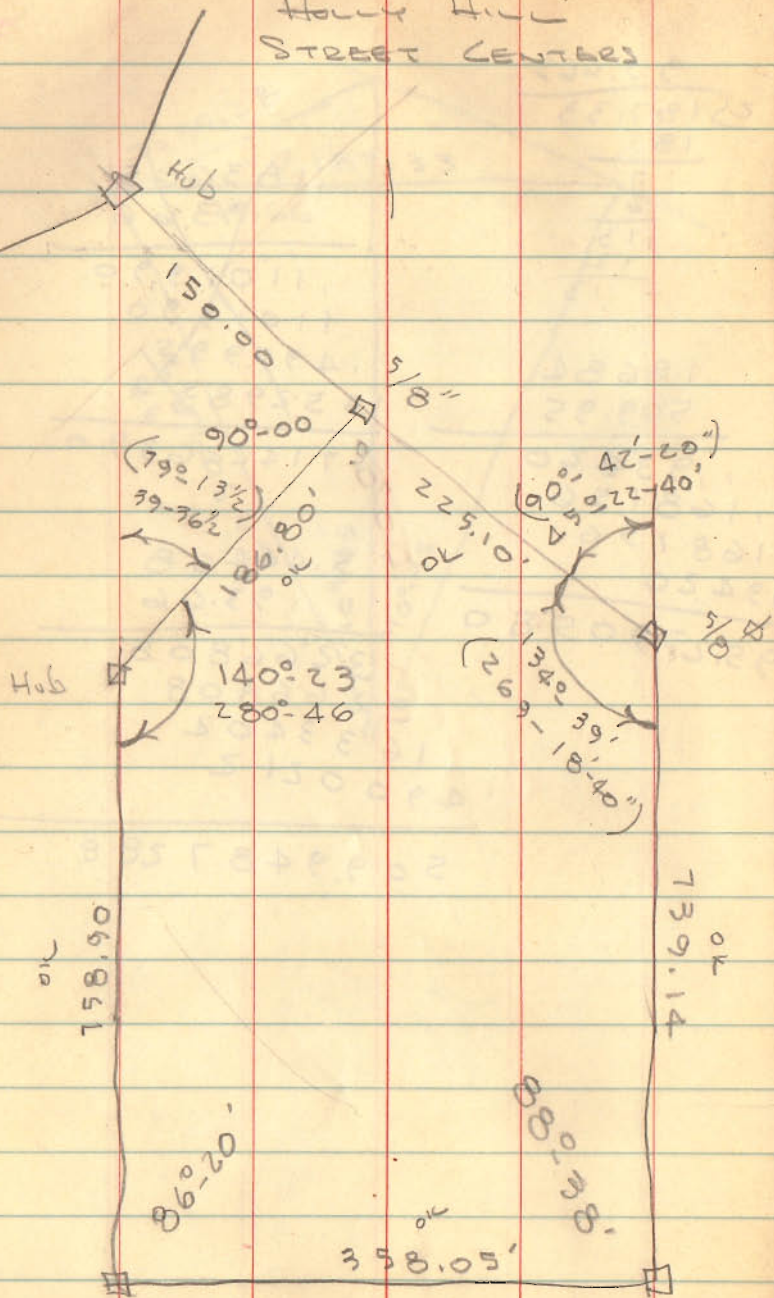 HOLLY HILL
STREET CENTERS
Hub
150.00
5/8"
90°-00
(79°-13½
39-36½)
186.80'
OK
225.10'
OK
(90°-42'-20")
45°-22-40"
5/8
Hub
140°-23
280°-46
134°-39'
(269-18'-40")
758.90
OK
739.14
OK
86°-20'
88°-38'
OK
358.05'